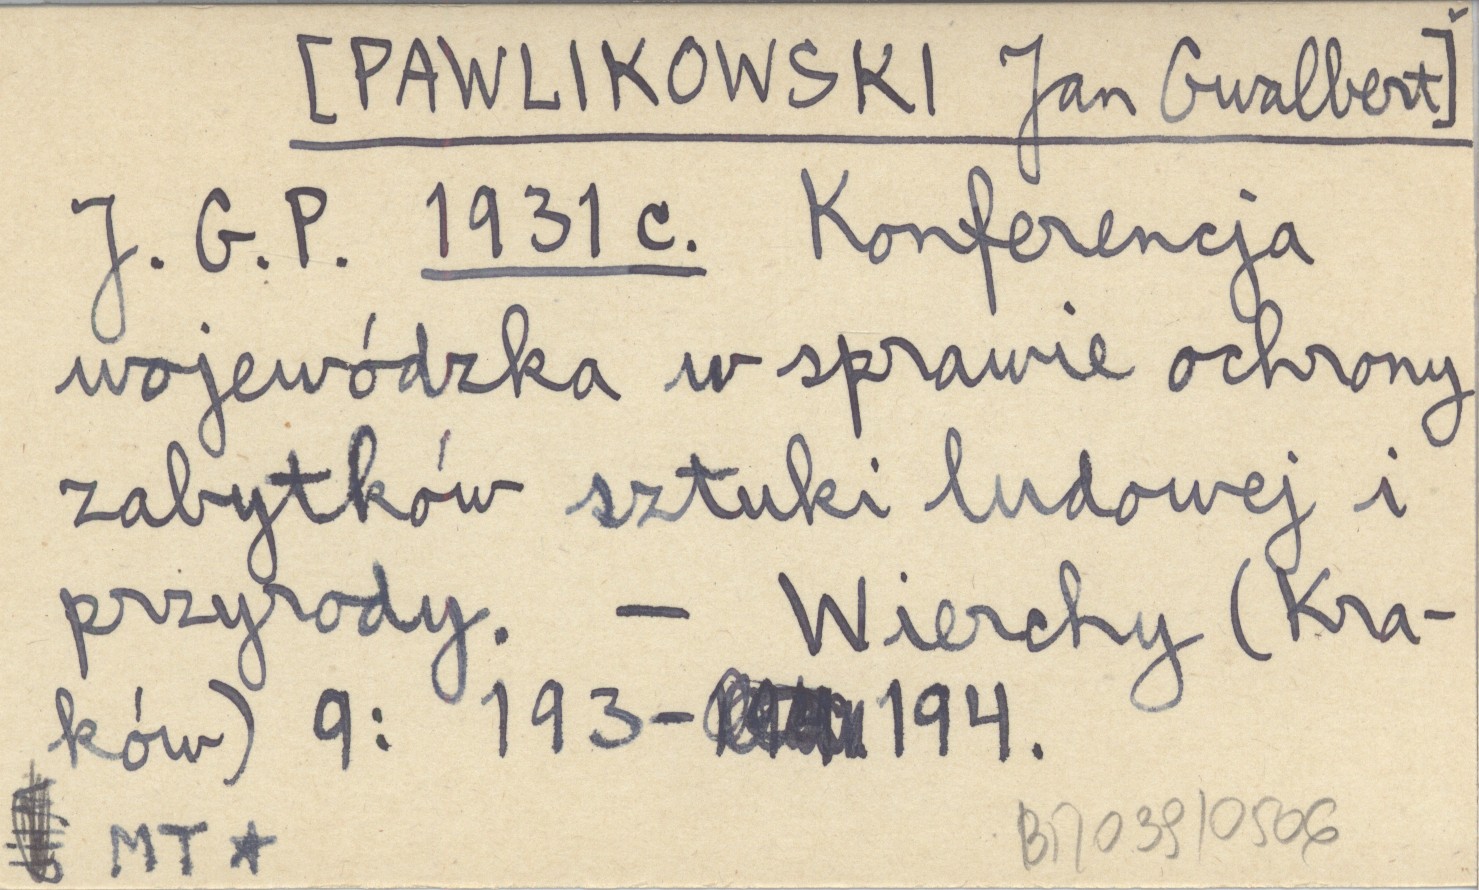 [PAWLIKOWSKI Jan Gwalbert]
J. G. P. 1931 c. Konferencja
wojewódzka w sprawie ochrony
zabytków sztuki ludowej i
przyrody. — Wierchy (Kra-
ków) 9: 193- 194.
MT ★
039/0506